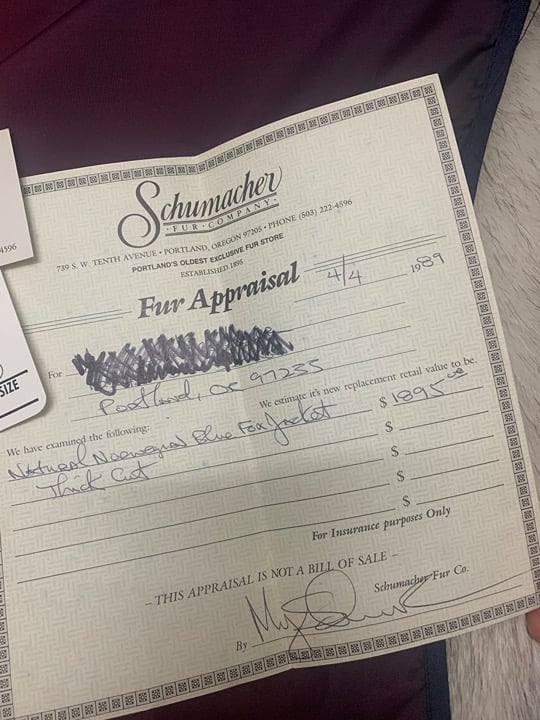 Schumacher
·FUR·COMPANY·
739 S. W. TENTH AVENUE • PORTLAND, OREGON 97205 • PHONE (503) 222-4596
PORTLAND'S OLDEST EXCLUSIVE FUR STORE
ESTABLISHED 1895
Fur Appraisal
4/4 1989
For
Portland, OR 97235
We have examined the following: We estimate it's new replacement retail value to be.
Natural Norwegian Blue Fox Jacket $ 1895 00
Thick Cut $
$
$
$
For Insurance purposes Only
– THIS APPRAISAL IS NOT A BILL OF SALE –
Schumacher Fur Co.
By
4596
SIZE